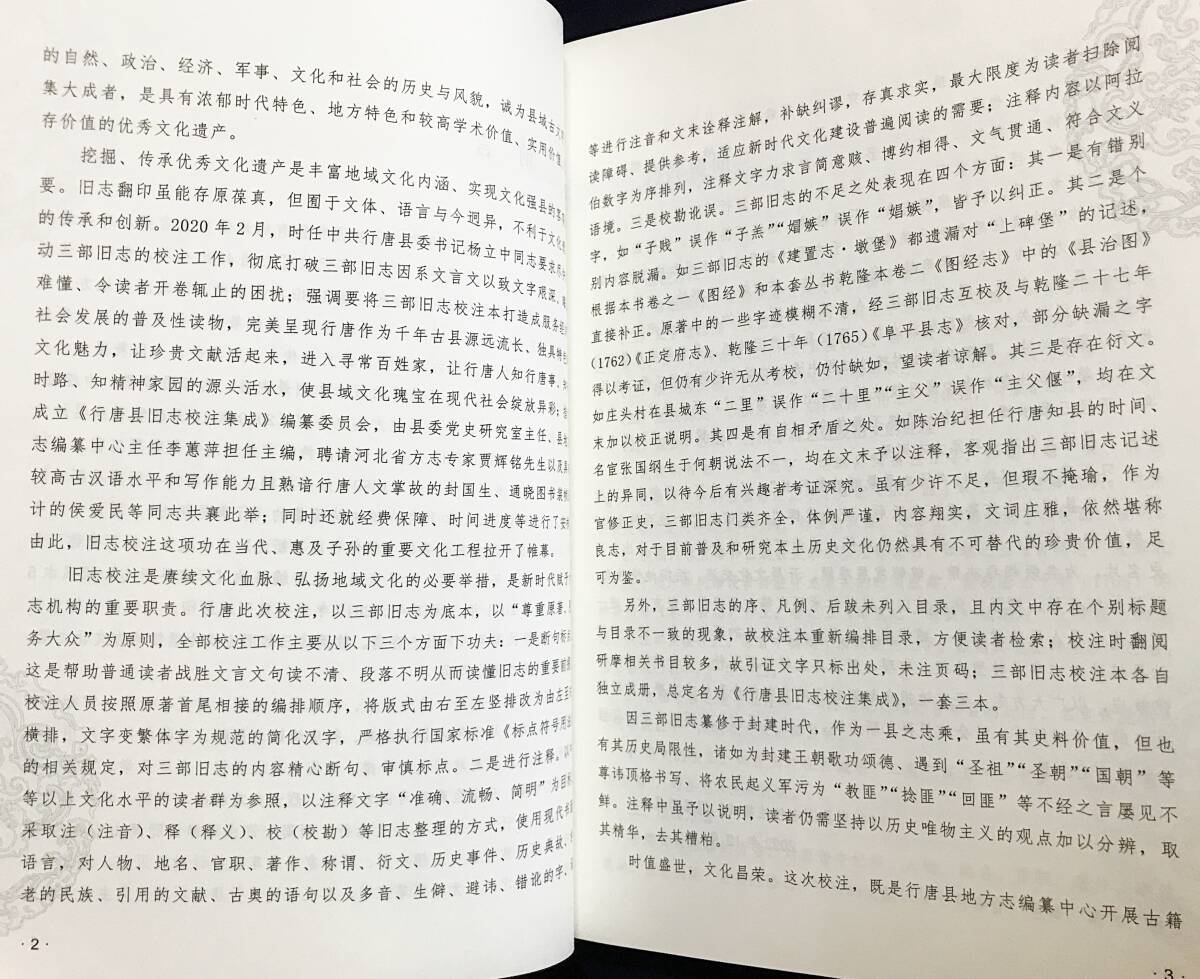 的自然、政治、经济、军事、文化和社会的历史与风貌，诚为县域古
集大成者，是具有浓郁时代特色、地方特色和较高学术价值、实用价值
存价值的优秀文化遗产。
挖掘、传承优秀文化遗产是丰富地域文化内涵、实现文化强县的
要。旧志翻印虽能存原葆真，但囿于文体、语言与今迥异，不利于文化
的传承和创新。2020年2月，时任中共行唐县委书记杨立中同志要求
动三部旧志的校注工作，彻底打破三部旧志因系文言文以致文字艰深、
难懂、令读者开卷辄止的困扰；强调要将三部旧志校注本打造成服务
社会发展的普及性读物，完美呈现行唐作为千年古县源远流长、独具
文化魅力，让珍贵文献活起来，进入寻常百姓家，让行唐人知行唐事、
时路、知精神家园的源头活水，使县域文化瑰宝在现代社会绽放异彩；
成立《行唐县旧志校注集成》编纂委员会，由县委党史研究室主任、县
志编纂中心主任李蕙萍担任主编，聘请河北省方志专家贾辉铭先生以及具
较高古汉语水平和写作能力且熟谙行唐人文掌故的封国生、通晓图书装
计的侯爱民等同志共襄此举；同时还就经费保障、时间进度等进行了安
由此，旧志校注这项功在当代、惠及子孙的重要文化工程拉开了帷幕。
旧志校注是赓续文化血脉、弘扬地域文化的必要举措，是新时代赋于
志机构的重要职责。行唐此次校注，以三部旧志为底本，以“尊重原著、
务大众”为原则，全部校注工作主要从以下三个方面下功夫：一是断句标
这是帮助普通读者战胜文言文句读不清、段落不明从而读懂旧志的重要前
校注人员按照原著首尾相接的编排顺序，将版式由右至左竖排改为由左至
横排，文字变繁体字为规范的简化汉字，严格执行国家标准《标点符号用法
的相关规定，对三部旧志的内容精心断句、审慎标点。二是进行注释。以
等以上文化水平的读者群为参照，以注释文字“准确、流畅、简明”为目
采取注（注音）、释（释义）、校（校勘）等旧志整理的方式，使用现代
语言，对人物、地名、官职、著作、称谓、衍文、历史事件、历史典故、
老的民族、引用的文献、古奥的语句以及多音、生僻、避讳、错讹的字、
·2·
等进行注音和文末诠释注解，补缺纠谬，存真求实，最大限度为读者扫除阅
读障碍、提供参考，适应新时代文化建设普遍阅读的需要；注释内容以阿拉
伯数字为序排列，注释文字力求言简意赅、博约相得、文气贯通、符合文义
语境。三是校勘讹误。三部旧志的不足之处表现在四个方面：其一是有错别
字，如“子贱”误作“子恙”“媢嫉”误作“娼嫉”，皆予以纠正。其二是个
别内容脱漏。如三部旧志的《建置志·墩堡》都遗漏对“上碑堡”的记述，
根据本书卷之一《图经》和本套丛书乾隆本卷二《图经志》中的《县治图》
直接补正。原著中的一些字迹模糊不清，经三部旧志互校及与乾隆二十七年
(1762)《正定府志》、乾隆三十年（1765）《阜平县志》核对，部分缺漏之字
得以考证，但仍有少许无从考校，仍付缺如，望读者谅解。其三是存在衍文。
如庄头村在县城东“二里”误作“二十里”“主父”误作“主父偃”，均在文
末加以校正说明。其四是有自相矛盾之处。如陈治纪担任行唐知县的时间、
名官张国纲生于何朝说法不一，均在文末予以注释，客观指出三部旧志记述
上的异同，以待今后有兴趣者考证深究。虽有少许不足，但瑕不掩瑜，作为
官修正史，三部旧志门类齐全，体例严谨，内容翔实，文词庄雅，依然堪称
良志，对于目前普及和研究本土历史文化仍然具有不可替代的珍贵价值，足
可为鉴。
另外，三部旧志的序、凡例、后跋未列入目录，且内文中存在个别标题
与目录不一致的现象，故校注本重新编排目录，方便读者检索；校注时翻阅
研摩相关书目较多，故引证文字只标出处，未注页码；三部旧志校注本各自
独立成册，总定名为《行唐县旧志校注集成》，一套三本。
因三部旧志纂修于封建时代，作为一县之志乘，虽有其史料价值，但也
有其历史局限性，诸如为封建王朝歌功颂德、遇到“圣祖”“圣朝”“国朝”等
尊讳顶格书写、将农民起义军污为“教匪”“捻匪”“回匪”等不经之言屡见不
鲜。注释中虽予以说明，读者仍需坚持以历史唯物主义的观点加以分辨，取
其精华，去其糟粕。
时值盛世，文化昌荣。这次校注，既是行唐县地方志编纂中心开展古籍
·3·